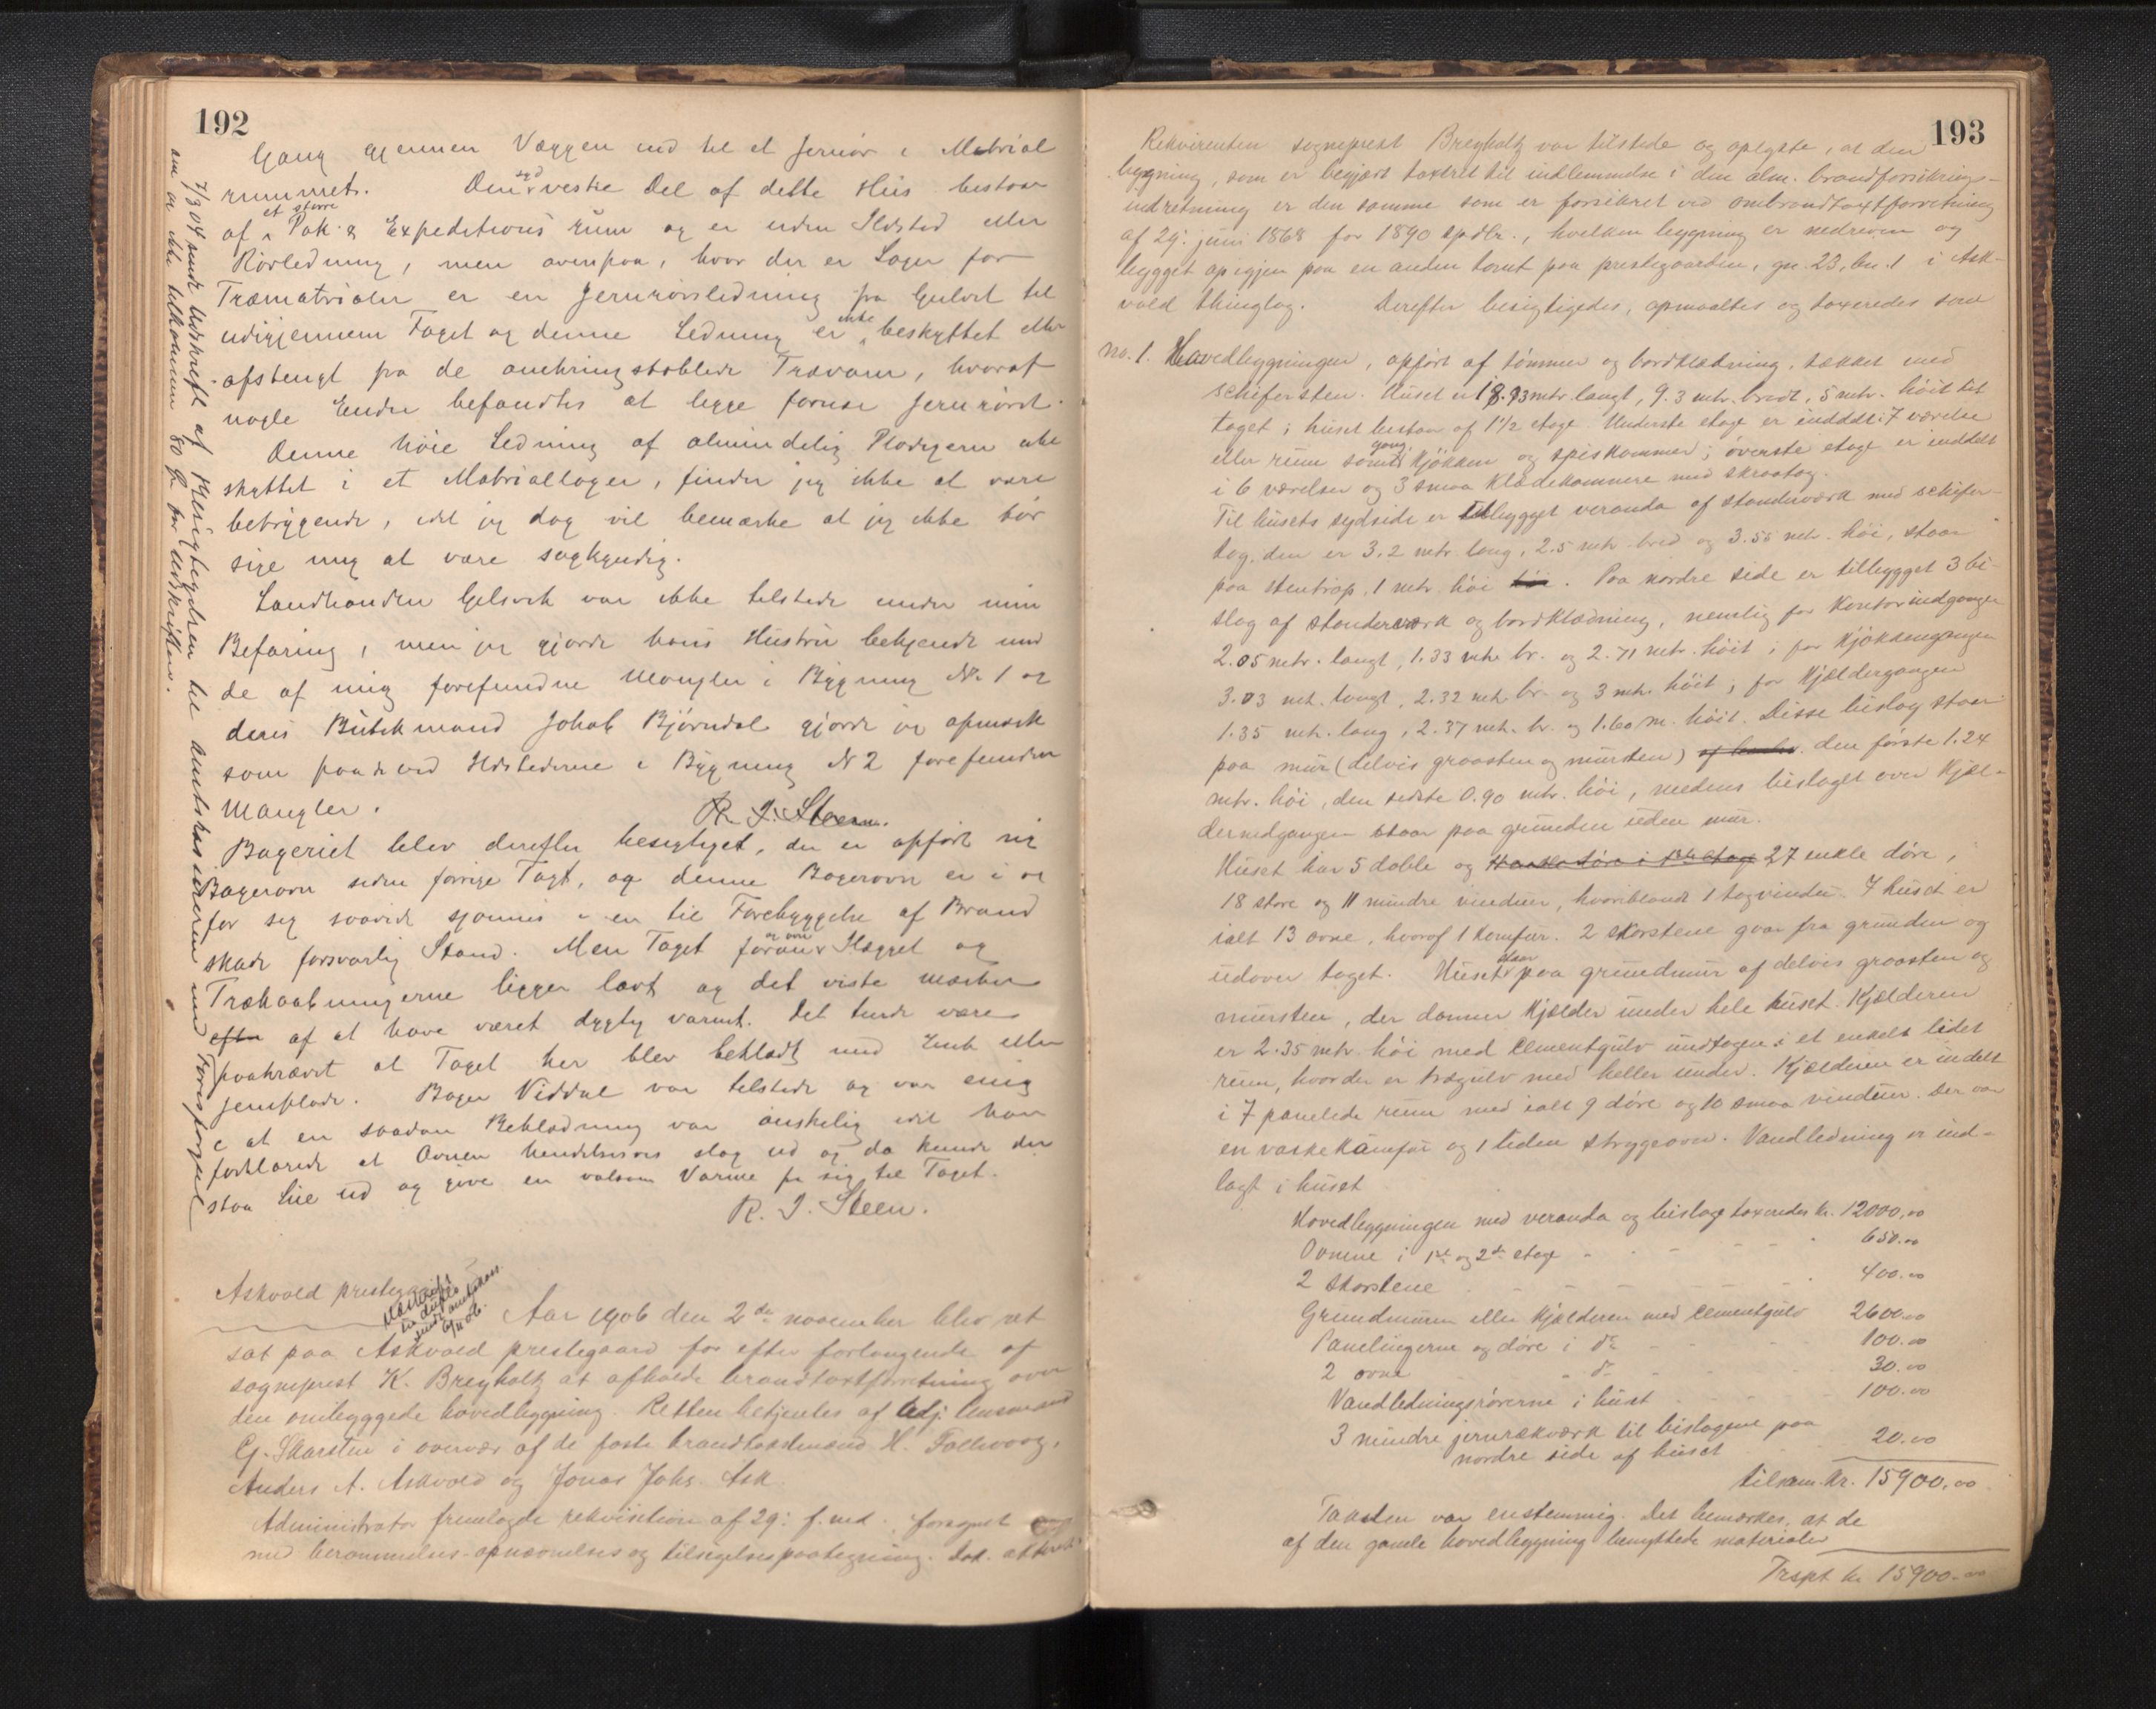 192
Gang gjennem Væggen ind til et Jernrør i Matrial
rummet. Den syd vestre Del af dette Hus bestaar
af et større Pak- & Expeditions rum og er uden Ildsted eller
Rørledning, men ovenpaa, hvor der er Lager for
Træmatrialer er en Jernrørsledning fra Gulvet til
udigjennem Taget og denne Ledning er ikke beskyttet eller
afstengt fra de omkringstablede Trævarer, hvoraf
nogle Ender befandtes at ligge foruse Jernrøret.
Denne høie Ledning af almindelig Pladejern ube
skyttet i et Matriallager, finder jeg ikke at være
betryggende, idet jeg dog vil bemærke at jeg ikke tør
sige mig at være sagkyndig.
Landhandler Gelsvik var ikke tilstede under min
Befaring, men jeg gjorde hans Hustru bekjendt med
de af mig forefundne Mangler i Bygning No 1 og
deres Butikmand Johab Bjørndal gjorde jeg opmerk
som paa de ved Ildstederne i Bygning N 2 forefundne
Mangler.
R. J. Steen.
Bageriet blev derefter besigtiget, der er opført ny
Bagerovn siden forrige Taxt, og denne Bagerovn er i og
for sig saavidt sjønnes i en til Forebyggelse af Brand
skade forsvarlig Stand. Men Taget foran og over Hægget og
Trækaabningerne ligger lavt og det viste mærker
efter af at have været dygtig varmt. Det turde være
paakrævet at Taget her blev beklædt med Zink eller
Jernplade. Bager Viddal var tilstede og var enig
i at en saadan Beklædning var ønskelig idet han
forklarede at Ovnen hendelsesvis slog ud og da kunde der
staa Lue ud og give en volsom Varme fra sig til Taget.
R. J. Steen.
7/3 04 sendt Udskrift af Besigtigelsen til Amtskassereren med Forespørgsel
om der ikke tilkommer 80 Øre for Udskriften.
Askvold prestegaard
Udskrift
in duplo
sendt amtskass.
6/11 06.
Aar 1906 den 2den november blev ret
sat paa Askvold prestegaard for efter forlangende af
sogneprest K. Breyholtz at afholde brandtaxtforretning over
den ombyggede hovedbygning. Retten betjentes af Adj. lensmand
G. Skarsten i overvær af de faste brandtaxtmænd H. Follevaag,
Anders A. Askvold og Jonas Johs. Ask.
Administrator fremlagde rekvisition af 29: f. md. forsynet
med berammelses- opnævnelses og tilsigelsespaategning.
193
Rekvirenten sogneprest Breyholtz var tilstede og oplyste, at den
bygning, som er begjært taxtret til indlemmelse i den alm. brandforsikrings-
indretning er den samme som er forsikret ved ombrandtaxtforretning
af 29: juni 1868 for 1890 spdlr., hvilken bygning er nedreven og
bygget op igjen paa en anden tomt paa prestegaarden, gn. 23, bn. 1 i Ask-
vold thinglag. Derefter besigtigedes, opmaaltes og taxeredes som
no. 1. Hovedbygningen, opført af tømmer og bordklædning, tækket med
schifersten. Huset er 18.93 mtr. langt, 9.3 mtr. bredt, 5 mtr. høit til
taget; huset bestaar af 1 1/2 etage. Underste etage er inddelt i 7 værelser
eller rum samt gang, kjøkken og spiskammer; øverste etage er inddelt
i 6 værelser og 3 smaa klædekamre med skraatag.
Til husets sydside er tilbygget veranda af standerværk med schifer-
tag, den er 3.2 mtr. lang, 2.5 mtr. bred og 3.55 mtr. høi, staar
paa stentrap, 1 mtr. høi høi. Paa nordre side er tilbygget 3 bi-
slag af standerværk og bordklædning, nemlig for kontorindgangen
2.05 mtr. langt, 1.33 mtr. br. og 2.71 mtr. høit; for kjøkkengangen
3.03 mtr. langt, 2.32 mtr. br. og 3 mtr. høit; for kjældergangen
1.35 mtr. lang, 2.37 mtr. br. og 1.60 m. høit. Disse bislag staar
paa mur (delvis graasten og mursten) den første 1.24
mtr. høi, den sidste 0.90 mtr. høi, medens bislaget over kjæl-
dernedgangen staar paa grunden uden mur.
Huset har 5 doble og 27 enkle døre,
18 store og 11 mindre vinduer, hvoriblandt 1 tagvindu. I huset er
ialt 13 ovne, hvoraf 1 komfur. 2 skorstene gaar fra grunden og
udover taget. Huset staar paa grundmur af delvis graasten og
mursten, der danner kjælder under hele huset. Kjælderen
er 2.35 mtr. høi med cementgulv undtagen i et enkelt lidet
rum, hvor der er trægulv med heller under. Kjælderen er indelt
i 7 panelede rum med ialt 9 døre og 10 smaa vinduer. Der var
en vaskekamfur og 1 liden strygeovn. Vandledning er ind-
lagt i huset
Hovedbygningen med veranda og bislag taxeredes kr. 12000,00
Ovnene i 1ste og 2den etage - - - 650.00
2 skorstene - - - 400.00
Grundmuren eller kjælderen med cementgulv 2600.00
Panelingerne og døre i do - - 100.00
2 ovne - do - 30.00
Vandledningsrørerne i huset - - 100.00
3 mindre jernrækværk til bislagene paa
nordre side af huset 20.00
tilsam. kr. 15900,00
Taksten var enstemmig. Det bemærkes, at de
af den gamle hovedbygning benyttede materialer
Trspt kr 15900.00